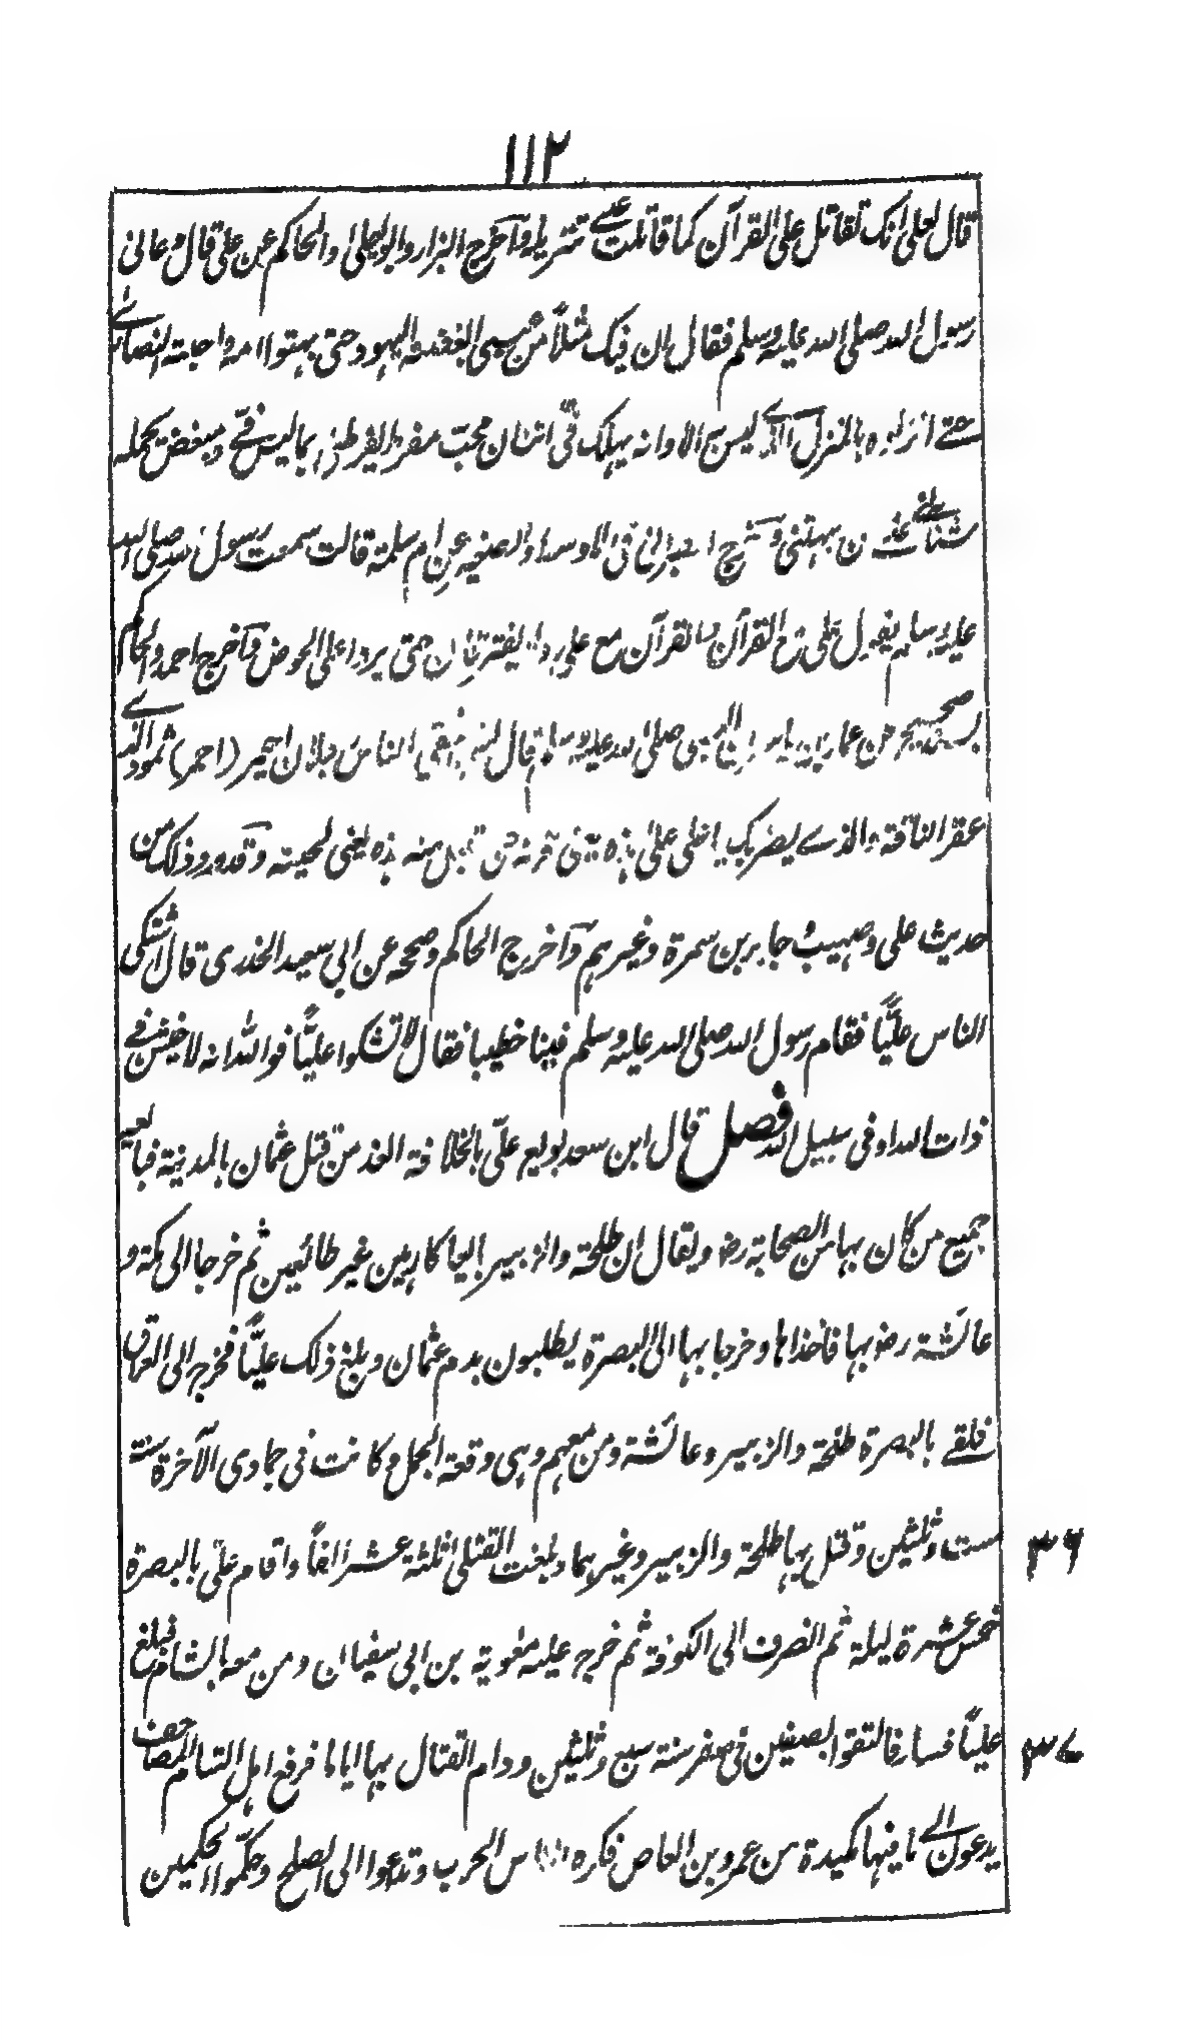 ١١٢
قال لعلي انك تقاتل على القرآن كما قاتلت على تنزيله وآخرج البزار وابو يعلى والحاكم عن على قال دعانى
رسول الله صلى الله عليه وسلم فقال ان فيك مثلاً من عيسى ابغضته اليهود حتى بهتوا امه واحبته النصارى
حتى انزلوه بالمنزل الذى ليس به الا وانه يهلك فىّ اثنان محب مفرط يفرطنى بما ليس فىّ ومبغض يحمله
شنانى على ان يبهتنى وآخرج الطبرانى فى الاوسط والصغير عن ام سلمة قالت سمعت رسول الله صلى الله
عليه وسلم يقول على مع القرآن والقرآن مع على لا يفترقان حتى يردا على الحوض وآخرج احمد والحاكم
بسند صحيح عن عمار بن ياسر ان النبى صلى الله عليه وسلم قال لعلى اشقى الناس رجلان احيمر (احمر) ثمود الذى
عقر الناقة والذى يضربك يا على على هذه يعنى قرنه حتى تبتل منه هذه يعنى لحيته وقد ورد ذلك من
حديث على وصهيب جابر بن سمرة وغيرهم وآخرج الحاكم وصححه عن ابى سعيد الخدرى قال اشتكى
الناس عليًّا فقام رسول الله صلى الله عليه وسلم فينا خطيبا فقال لا تشكوا عليًّا فوالله انه لاخيشن فى
ذات الله او فى سبيل الله فصل قال ابن سعد بويع علىّ بالخلافة الغد من قتل عثمان بالمدينة فبايعه
جميع من كان بها من الصحابة رض ويقال ان طلحة والزبير بايعا كارهين غير طائعين ثم خرجا الى مكة و
عائشة رض بها فاخذاها وخرجا بها الى البصرة يطلبون بدم عثمان وبلغ ذلك عليًّا فخرج الى العراق
فلقى بالبصرة طلحة والزبير وعائشة ومن معهم وهى وقعة الجمل وكانت فى جمادى الآخرة سنة
ست وثلثين وقتل بها طلحة والزبير وغيرهما وبلغت القتلى ثلثة عشر الفاً واقام علىّ بالبصرة ٣٦
خمس عشرة ليلة ثم انصرف الى الكوفة ثم خرج عليه معوية بن ابى سفيان ومن معه بالشام فبلغ
عليًّا فسار فالتقوا بصفين فى صفر سنة سبع وثلثين ودام القتال بها اياما فرفع اهل الشام المصاحف ٣٧
يدعون الى ما فيها مكيدة من عمرو بن العاص فكره الناس الحرب وتداعوا الى الصلح وحكموا الحكمين